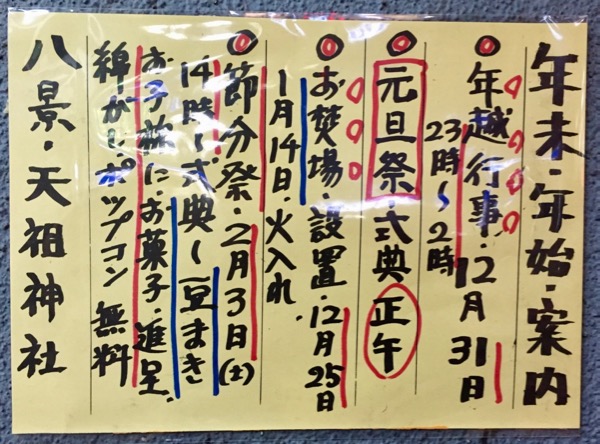 年末・年始・案内
年越行事・12月31日
23時〜2時
元旦祭・式典 正午
お焚場・設置・12月25日
1月14日・火入れ.
節分祭・2月3日(土)
14時〜式典〜豆まき
お子様に・お菓子・進呈.
綿がし・ポップコン 無料
八景・天祖神社